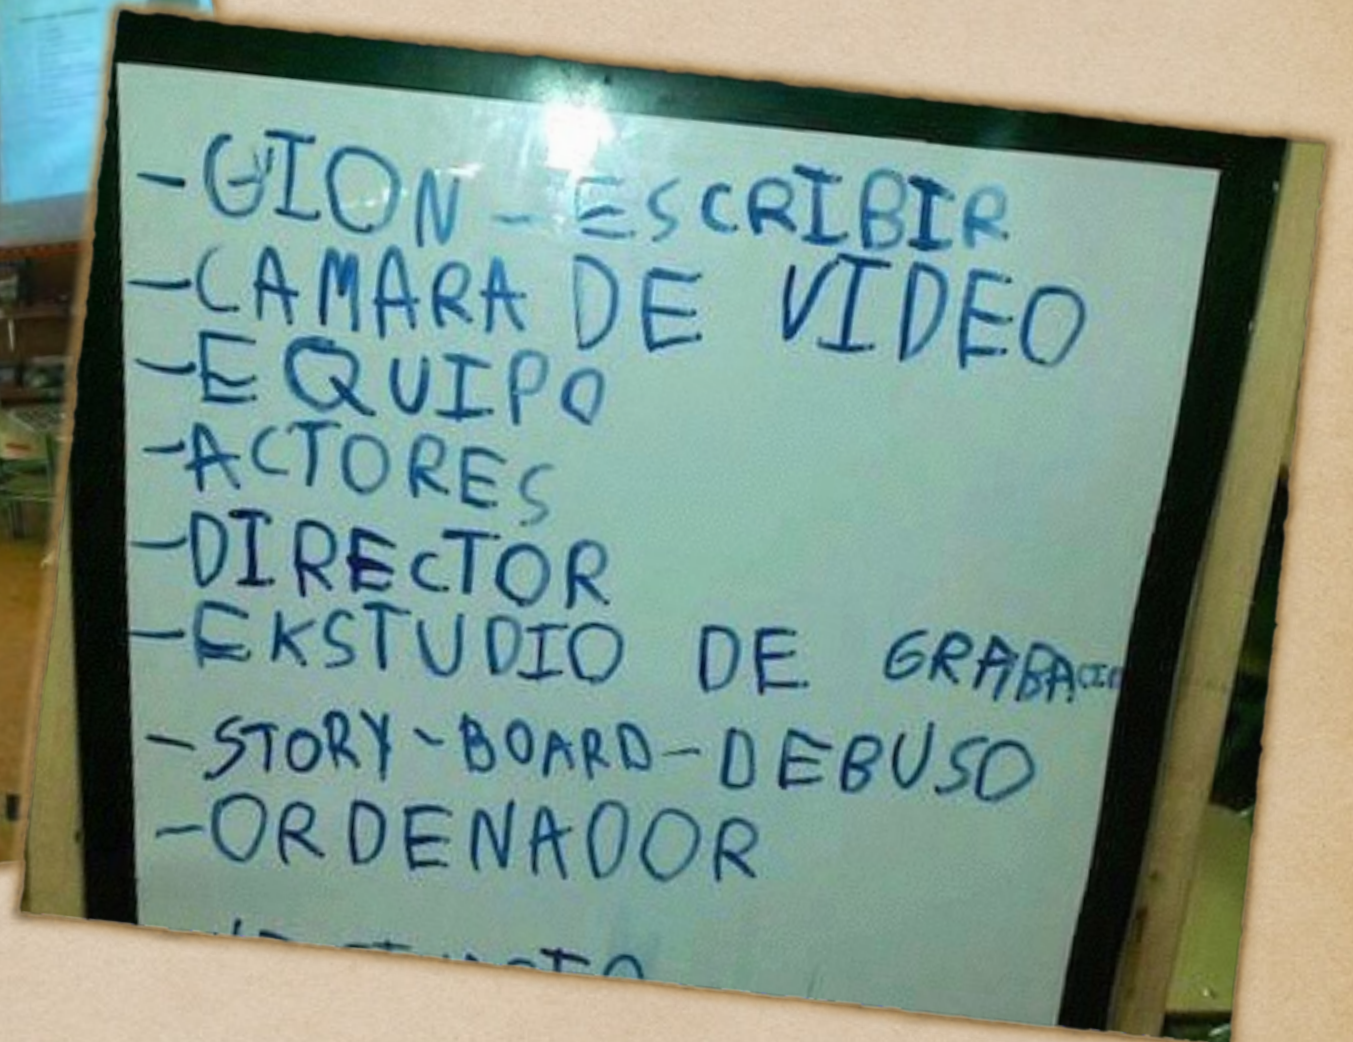 - GION - ESCRIBIR
- CAMARA DE VIDEO
- EQUIPO
- ACTORES
- DIRECTOR
- EKSTUDIO DE GRABACION
- STORY - BOARD - DEBUSO
- ORDENADOR